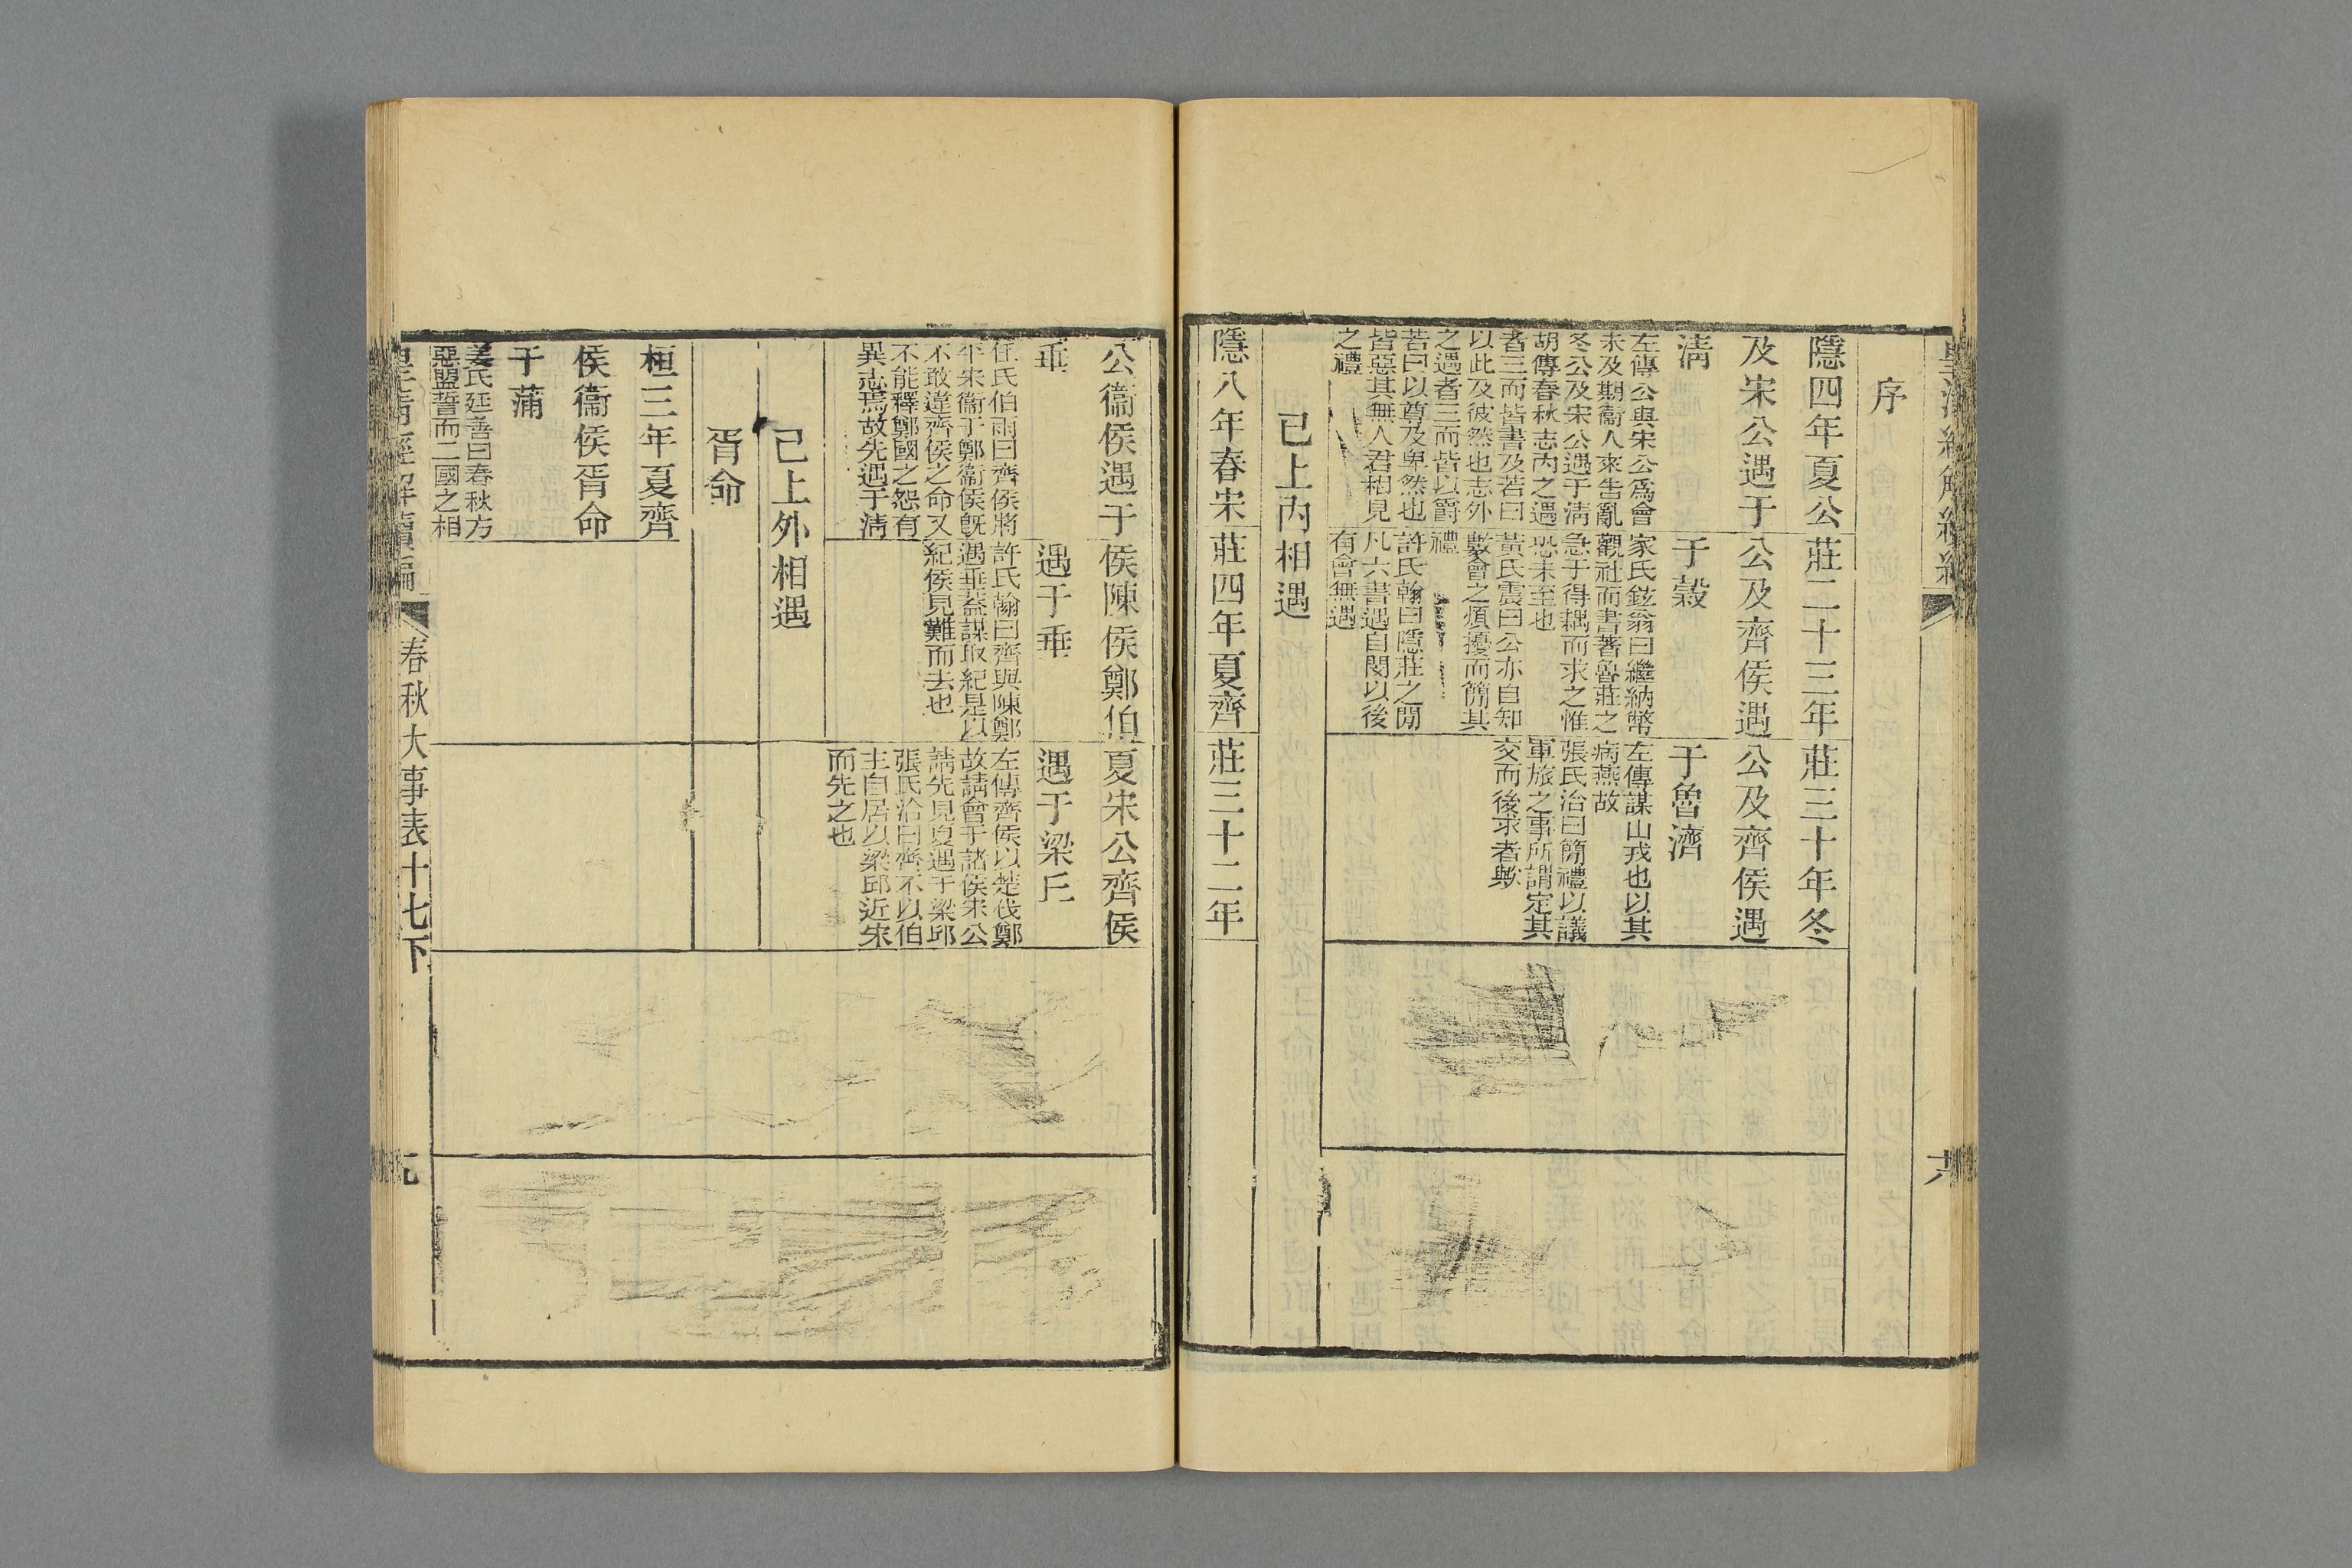 序
隱四年夏公
及宋公遇于
淸
左傳公與宋公爲會
未及期衞人來告亂
冬公及宋公遇于淸
胡傳春秋志內之遇
者三而皆書及若曰
以此及彼然也志外
之遇者三而皆以爵
若曰以尊及卑然也
皆惡其無人君相見
之禮
莊二十三年
公及齊侯遇
于穀
家氏鉉翁曰繼納幣
觀社而書著魯莊之
急于得耦而求之惟
恐未至也
黃氏震曰公亦自知
數會之煩擾而簡其
禮
許氏翰曰隱莊之閒
凡六書遇自閔以後
有會無遇
莊三十年冬
公及齊侯遇
于魯濟
左傳謀山戎也以其
病燕故
張氏洽曰簡禮以議
軍旅之事所謂定其
交而後求者歟
已上內相遇
隱八年春宋
莊四年夏齊
莊三十二年
公衞侯遇于
垂
任氏伯雨曰齊侯將
平宋衞于鄭衞侯旣
不敢違齊侯之命又
不能釋鄭國之怨有
異志焉故先遇于淸
侯陳侯鄭伯
遇于垂
許氏翰曰齊與陳鄭
遇垂葢謀取紀是以
紀侯見難而去也
夏宋公齊侯
遇于梁丘
左傳齊侯以楚伐鄭
故請會于諸侯宋公
請先見夏遇于梁邱
張氏洽曰齊不以伯
主自居以梁邱近宋
而先之也
已上外相遇
胥命
桓三年夏齊
侯衞侯胥命
于蒲
姜氏廷善曰春秋方
惡盟誓而二國之相
皇淸經解續編
春秋大事表十七下